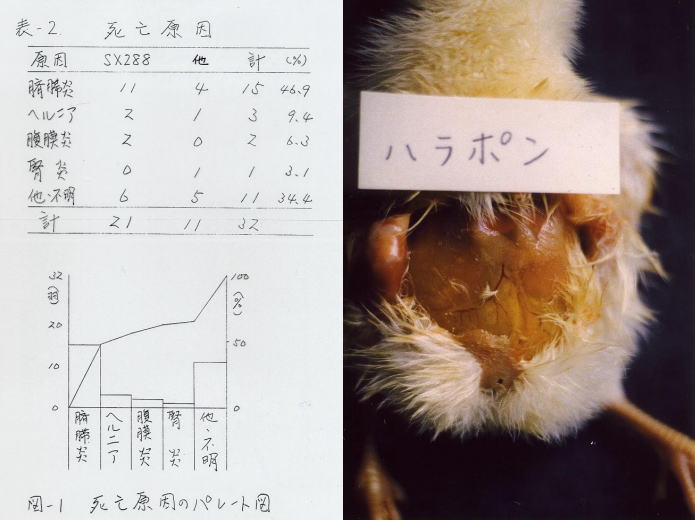 表-2. 死亡原因
原因 SX288 他 計 (%)
臍帯炎 11 4 15 46.9
ヘルニア 2 1 3 9.4
腹膜炎 2 0 2 6.3
腎炎 0 1 1 3.1
他・不明 6 5 11 34.4
計 21 11 32
32 100
(羽) (%)
20
50
10
0 0
臍帯炎
ヘルニア
腹膜炎
腎炎
他・不明
図-1 死亡原因のパレート図
ハラポン